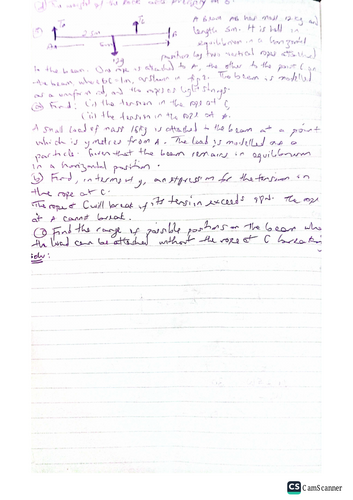 A beam AB has mass 12kg and
TA TC
2.5m
A B
12g
length 5m. It is held in
equilibrium in a horizontal
position by two vertical ropes attached
to the beam. One rope is attached to A, the other to the point C on
the beam where BC=1m, as shown in fig. The beam is modelled
as a uniform rod, and the ropes as light strings.
(a) Find: i) the tension in the rope at C,
ii) the tension in the rope at A.
A small load of mass 16kg is attached to the beam at a point
which is y metres from A. The load is modelled as a
particle. Given that the beam remains in equilibrium
in a horizontal position.
(b) Find, in terms of y, an expression for the tension in
the rope at C.
The rope at C will break if its tension exceeds 98N. The rope
at A cannot break.
(c) Find the range of possible positions on the beam
the load can be attached without the rope at C breaking
Soln:
CS CamScanner